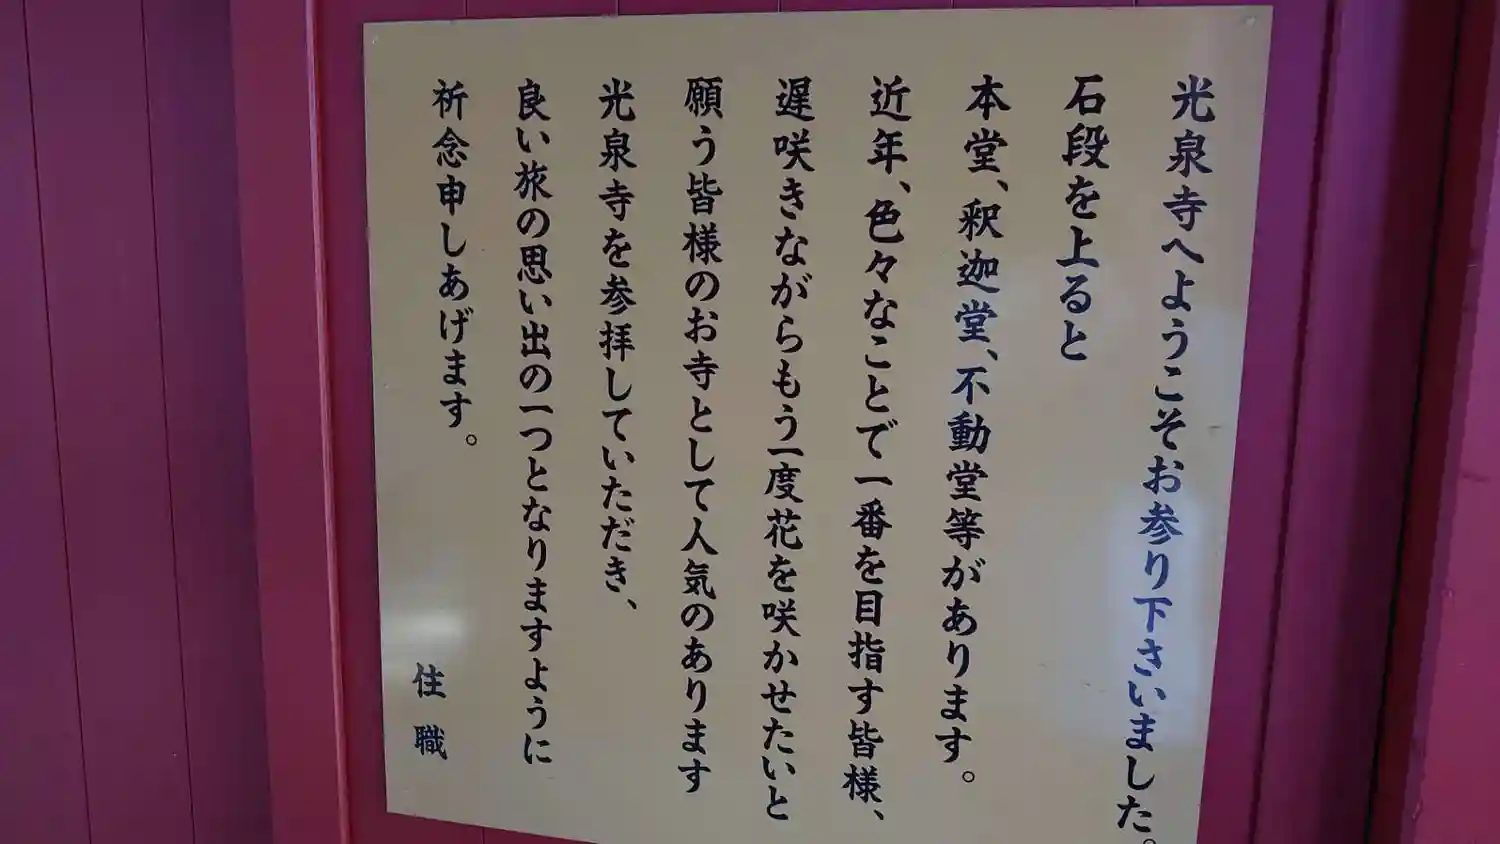 光泉寺へようこそお参り下さいました。
石段を上ると
本堂、釈迦堂、不動堂等があります。
近年、色々なことで一番を目指す皆様、
遅咲きながらもう一度花を咲かせたいと
願う皆様のお寺として人気のあります
光泉寺を参拝していただき、
良い旅の思い出の一つとなりますように
祈念申しあげます。
住職